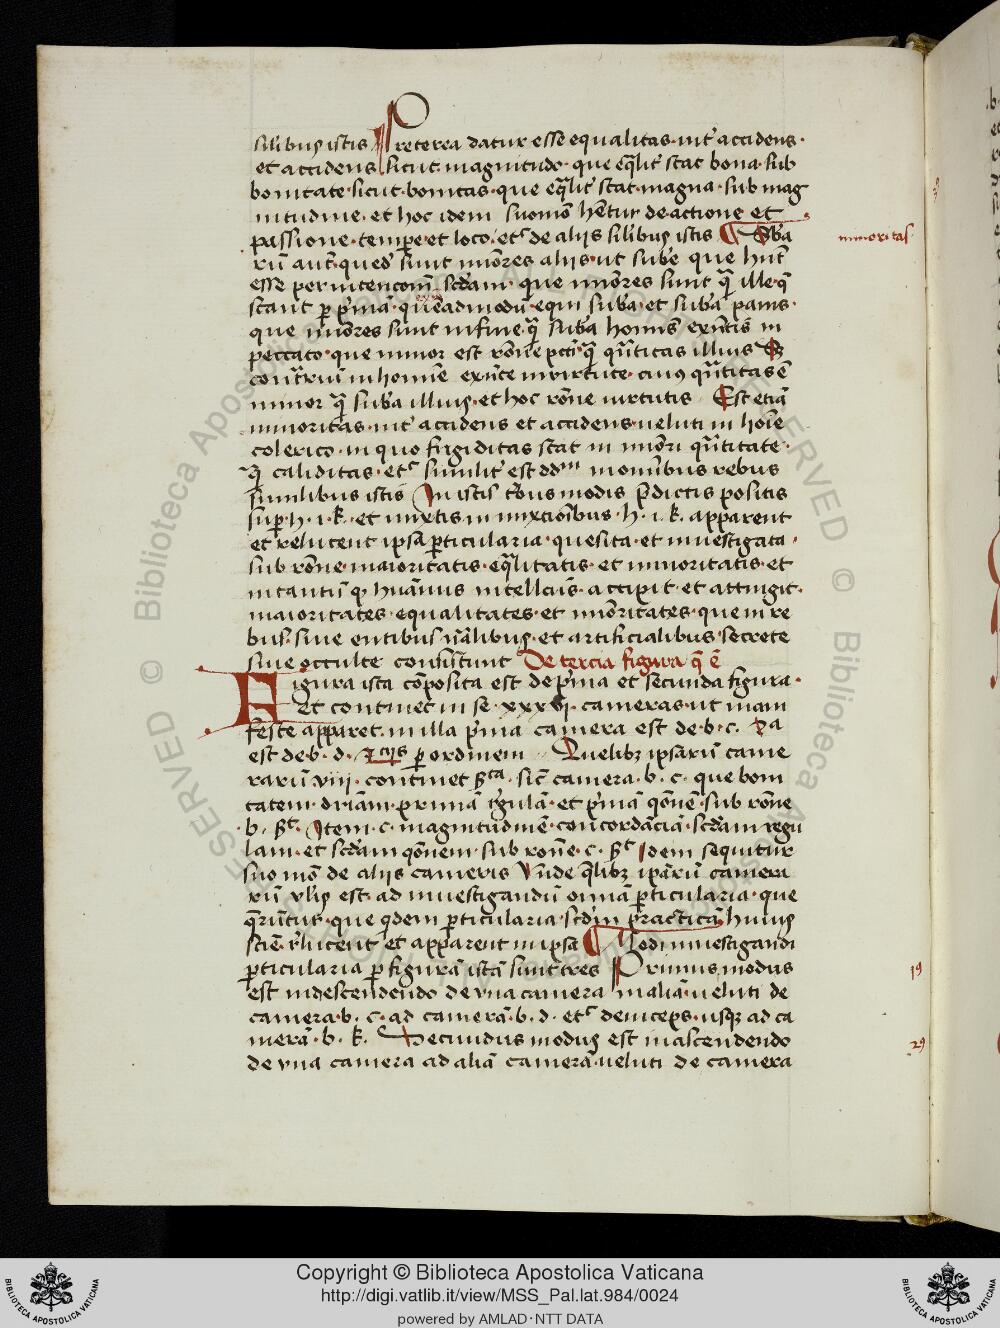 silibus istis Preterea datur esse equalitas int' accidens ·
et accidens sicut magnitudo · que eqlit' stat bona · sub
bonitate · sicut · bonitas · que eqlit' stat magna · sub mag
nitudine · et hoc idem suomo hentur de actione et
passione · tempore et loco · etc de aliis silibus istis Sba
minoritas
rum aut · quedam sunt minores aliis · ut sube que hnt
esse per intencom scdam · que minores sunt qm ille · q
stant p prima · quemadmodu equi suba · et suba panis ·
que minores sunt in fine · qm suba hominis exntis in
peccato · que minor est rone pcti qm quititas illius
contrarium in homine exnte in virtute · cuius quititas e
minor qm suba illius · et hoc rone virtutis Est etia
minoritas · int' accidens et accidens · veluti in hoie
colerico · in quo frigiditas stat in minori quititate ·
qm caliditas · etc similit' est ddm in omnibus rebus
similibus istis In istis tribus modis predictis positis
super · h · i · k · et mixtis in mixcionibus · h · i · k · apparent
et relucent ipsa particularia · quesita · et investigata ·
sub rone · maioritatis · eqlitatis · et minoritatis · et
in tantum q humanus intellectus · accipit · et attingit ·
maioritates · equalitates · et minoritates · que in re
bus · sive entibus nalibus · et artificialibus · secrete
sive occulte consistunt De tercia figura q e
Figura ista composita est de prima et secunda figura ·
Et continet in se · xxxvj · cameras · ut mani
feste apparet · in illa prima camera est de · b · c · 2a
est de · b · d · p ordinem Quelibz ipsarum came
rarum · viiii · continet sta · sic camera · b · c · que boni
tatem · driam · primam rglam · et primam qonem · sub rone
b · st · Item · c · magnitudinem · concordanciam · scdam regu
lam · et scdam qonem · sub rone · c · st Idem sequitur
suo modo de aliis cameris Unde qlibz iparum cameri
rum vlis est · ad investigandum omnia particularia · que
qruntur · que qdem particularia · scdm practicam huius
scie · rlucent et apparent in ipsa Modi investigandi
particularia p figuram istam sunt tres Primus modus
19
est in descendendo de una camera in aliam · veluti de
camera · b · c · ad cameram · b · d · etc deinceps · usqz ad ca
meram · b · k · Secundus modus est in ascendendo
29
de una camera ad aliam cameram · veluti de camera
Copyright © Biblioteca Apostolica Vaticana
http://digi.vatlib.it/view/MSS_Pal.lat.984/0024
powered by AMLAD · NTT DATA